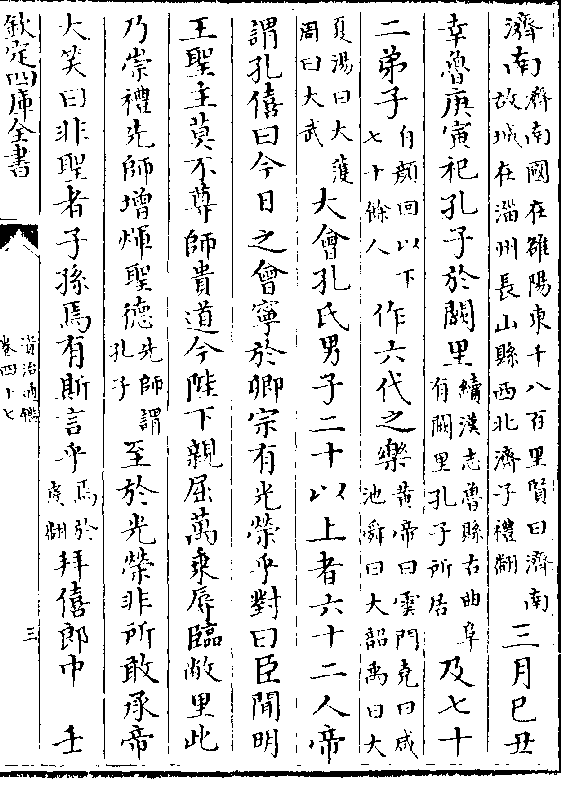 濟南濟南國在雒陽東千八百里賢曰濟南故城在淄州長山縣西北濟子禮翻三月己丑
幸魯庚寅祀孔子於闕里續漢志魯縣古曲阜有闕里孔子所居及七十
二弟子自顔回以下七十餘人作六代之樂黄帝曰雲門堯曰咸池舜曰大韶禹曰大
夏湯曰大濩周曰大武大會孔氏男子二十以上者六十二人帝
謂孔僖曰今日之會寧於卿宗有光榮乎對曰臣聞明
王聖主莫不尊師貴道今陛下親屈萬乘辱臨敝里此
乃崇禮先師增煇聖德先師謂孔子至於光榮非所敢承帝
大笑曰非聖者子孫焉有斯言乎焉於虔翻拜僖郎中 壬
欽定四庫全書
資治通鑑
卷四十七
三